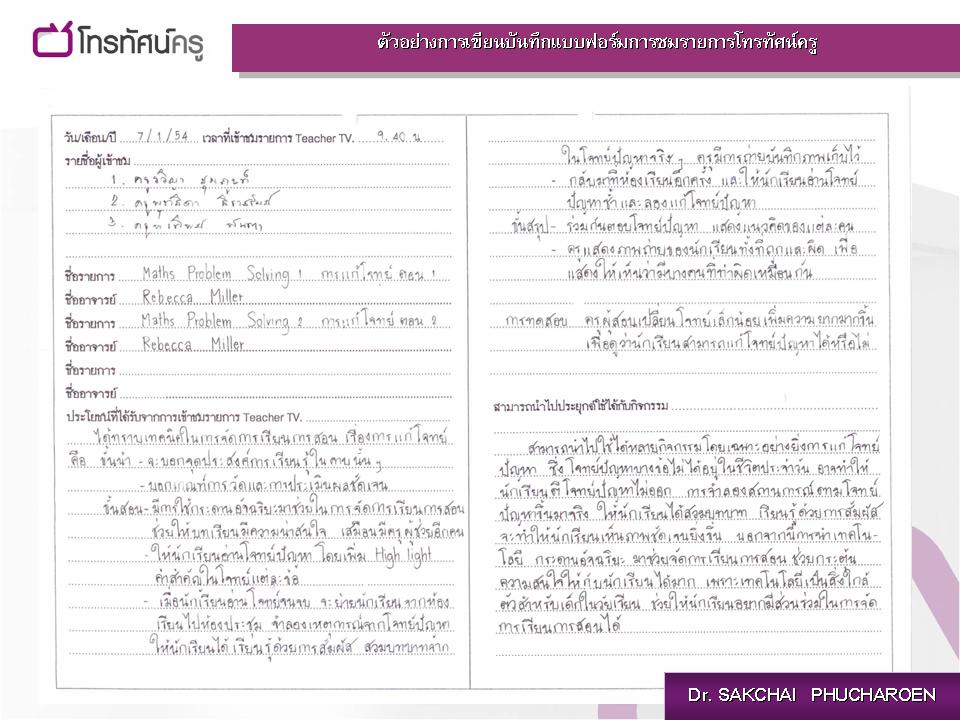 โทรทัศน์ครู
ตัวอย่างการเขียนบันทึกแบบฟอร์มการชมรายการโทรทัศน์ครู
วัน/เดือน/ปี 7/1/54 เวลาที่เข้าชมรายการ Teacher TV. 9.40 น
รายชื่อผู้เข้าชม
1. ครู
2. ครู
3. ครู
ชื่อรายการ Maths Problem Solving 1 การแก้โจทย์ ตอน 1
ชื่ออาจารย์ Rebecca Miller
ชื่อรายการ Maths Problem Solving 2 การแก้โจทย์ ตอน 2
ชื่ออาจารย์ Rebecca Miller
ชื่อรายการ
ชื่ออาจารย์
ประโยชน์ที่ได้รับจากการเข้าชมรายการ Teacher TV.
ได้ทราบเทคนิคในการจัดการเรียนการสอน เรื่องการแก้โจทย์
คือ ขั้นนำ - จะบอกจุดประสงค์การเรียนรู้ในคาบนั้นๆ
- บอกเกณฑ์การวัดและการประเมินผลชัดเจน
ขั้นสอน - มีการใช้กระดานอัจฉริยะมาช่วยในการจัดการเรียนการสอน
ช่วยให้บทเรียนมีความน่าสนใจ เสมือนมีครูผู้ช่วยอีกคน
- ให้นักเรียนอ่านโจทย์ปัญหา โดยเพิ่ม High light
คำสำคัญในโจทย์แต่ละข้อ
- เมื่อนักเรียนอ่านโจทย์จนจบ จะย้ายนักเรียนจากห้อง
เรียนไปห้องประชุม จำลองเหตุการณ์จากโจทย์ปัญหา
ให้นักเรียนได้เรียนรู้ด้วยการสัมผัส สวมบทบาทจาก
ในโจทย์ปัญหาจริงๆ ครูมีการถ่ายบันทึกภาพเก็บไว้
- กลับมาที่ห้องเรียนอีกครั้ง และให้นักเรียนอ่านโจทย์
ปัญหาซ้ำและลองแก้โจทย์ปัญหา
ขั้นสรุป - ร่วมกันตอบโจทย์ปัญหา แสดงแนวคิดของแต่ละคน
- ครูแสดงภาพถ่ายของนักเรียนทั้งที่ถูกและผิด เพื่อ
แสดงให้เห็นว่ามีบางคนที่ทำผิดเหมือนกัน
การทดสอบ ครูผู้สอนเปลี่ยนโจทย์เล็กน้อยเพิ่มความยากมากขึ้น
เพื่อดูว่านักเรียนสามารถแก้โจทย์ปัญหาได้หรือไม่
สามารถนำไปประยุกต์ใช้ได้กับกิจกรรม
สามารถนำไปใช้ได้หลายกิจกรรมโดยเฉพาะอย่างยิ่งการแก้โจทย์
ปัญหา ซึ่งโจทย์ปัญหาบางข้อไม่ได้อยู่ในชีวิตประจำวัน อาจทำให้
นักเรียนตีโจทย์ปัญหาไม่ออก การจำลองสถานการณ์ตามโจทย์
ปัญหาขึ้นมาจริง ให้นักเรียนได้สวมบทบาท เรียนรู้ด้วยการสัมผัส
จะทำให้นักเรียนเห็นภาพชัดเจนยิ่งขึ้น นอกจากนี้การนำเทคโน-
โลยี กระดานอัจฉริยะ มาช่วยจัดการเรียนการสอน ช่วยกระตุ้น
ความสนใจให้กับนักเรียนได้มาก เพราะเทคโนโลยีเป็นสิ่งใกล้
ตัวสำหรับเด็กในวัยเรียน ช่วยให้นักเรียนอยากมีส่วนร่วมในการจัด
การเรียนการสอนได้
Dr. SAKCHAI PHUCHAROEN